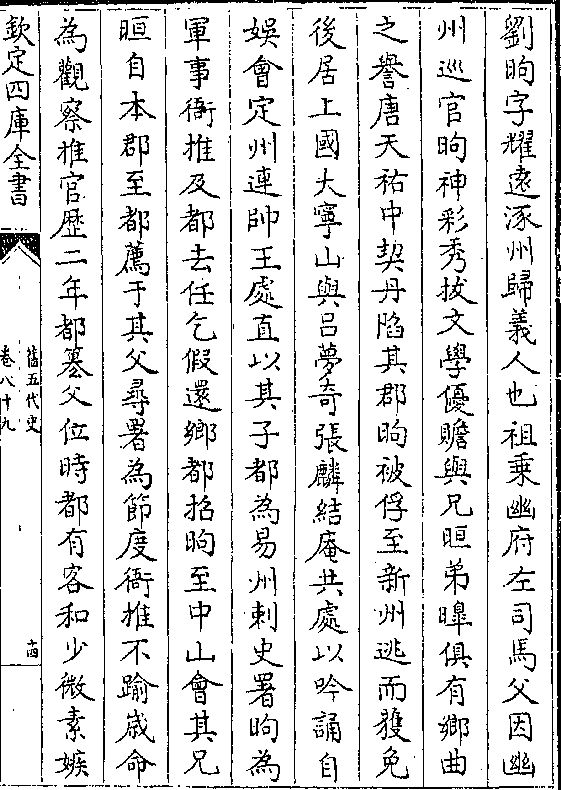 劉昫字耀遠涿州歸義人也祖乘幽府左司馬父因幽
州巡官昫神彩秀拔文學優贍與兄晅弟皥俱有鄉曲
之譽唐天祐中契丹䧟其郡昫被俘至新州逃而獲免
後居上國大寧山與呂夢奇張麟結庵共處以吟誦自
娛會定州連帥王處直以其子都為易州刺史署昫為
軍事衙推及都去任乞假還鄉都招昫至中山會其兄
晅自本郡至都薦于其父尋署為節度衙推不踰歲命
為觀察推官歷二年都簒父位時都有客和少微素嫉
欽定四庫全書
舊五代史
卷八十九
十四